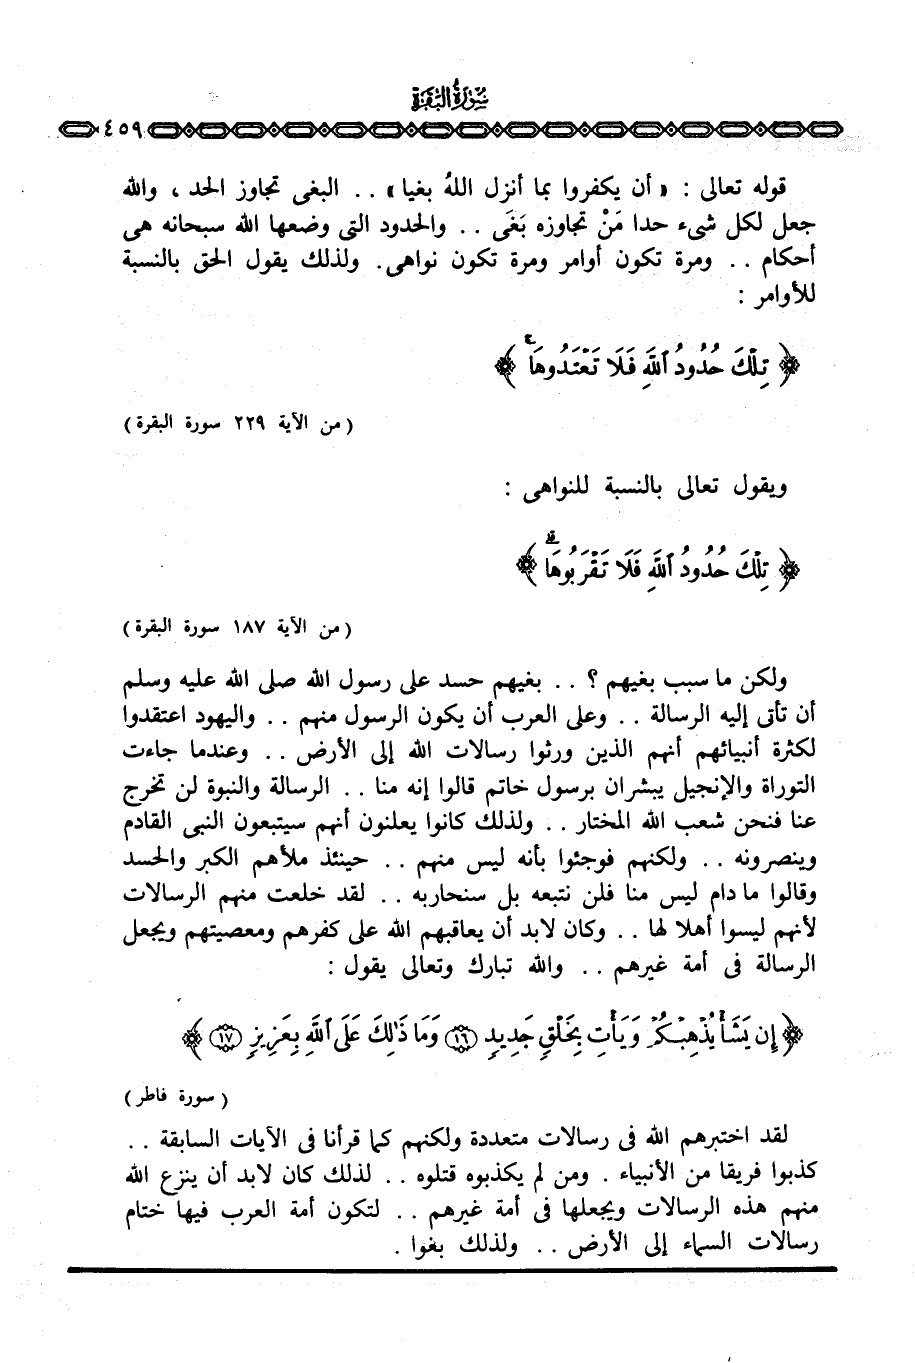 سورة البقرة
٤٥٩
قوله تعالى : « أن يكفروا بما أنزل اللهُ بغيا» . . البغى تجاوز الحد ، والله
جعل لكل شىء حدا مَنْ تجاوزه بَغَى . . والحدود التى وضعها الله سبحانه هى
أحكام . . ومرة تكون أوامر ومرة تكون نواهى. ولذلك يقول الحق بالنسبة
للأوامر :
﴿ تِلْكَ حُدُودُ ٱللَّهِ فَلَا تَعْتَدُوهَا ۚ ﴾
( من الآية ٢٢٩ سورة البقرة )
ويقول تعالى بالنسبة للنواهى :
﴿ تِلْكَ حُدُودُ ٱللَّهِ فَلَا تَقْرَبُوهَا ۗ ﴾
( من الآية ١٨٧ سورة البقرة )
ولكن ما سبب بغيهم ؟ . . بغيهم حسد على رسول الله صلى الله عليه وسلم
أن تأتى إليه الرسالة . . وعلى العرب أن يكون الرسول منهم . . واليهود اعتقدوا
لكثرة أنبيائهم أنهم الذين ورثوا رسالات الله إلى الأرض . . وعندما جاءت
التوراة والإنجيل يبشران برسول خاتم قالوا إنه منا . . الرسالة والنبوة لن تخرج
عنا فنحن شعب الله المختار . . ولذلك كانوا يعلنون أنهم سيتبعون النبى القادم
وينصرونه . . ولكنهم فوجئوا بأنه ليس منهم . . حينئذ ملأهم الكبر والحسد
وقالوا ما دام ليس منا فلن نتبعه بل سنحاربه . . لقد خلعت منهم الرسالات
لأنهم ليسوا أهلا لها . . وكان لابد أن يعاقبهم الله على كفرهم ومعصيتهم ويجعل
الرسالة فى أمة غيرهم . . والله تبارك وتعالى يقول :
﴿ إِن يَشَأْ يُذْهِبْكُمْ وَيَأْتِ بِخَلْقٍ جَدِيدٍ ۝١٦ وَمَا ذَٰلِكَ عَلَى ٱللَّهِ بِعَزِيزٍ ۝١٧ ﴾
( سورة فاطر )
لقد اختبرهم الله فى رسالات متعددة ولكنهم كما قرأنا فى الآيات السابقة . .
كذبوا فريقا من الأنبياء . ومن لم يكذبوه قتلوه . . لذلك كان لابد أن ينزع الله
منهم هذه الرسالات ويجعلها فى أمة غيرهم . . لتكون أمة العرب فيها ختام
رسالات السماء إلى الأرض . . ولذلك بغوا .